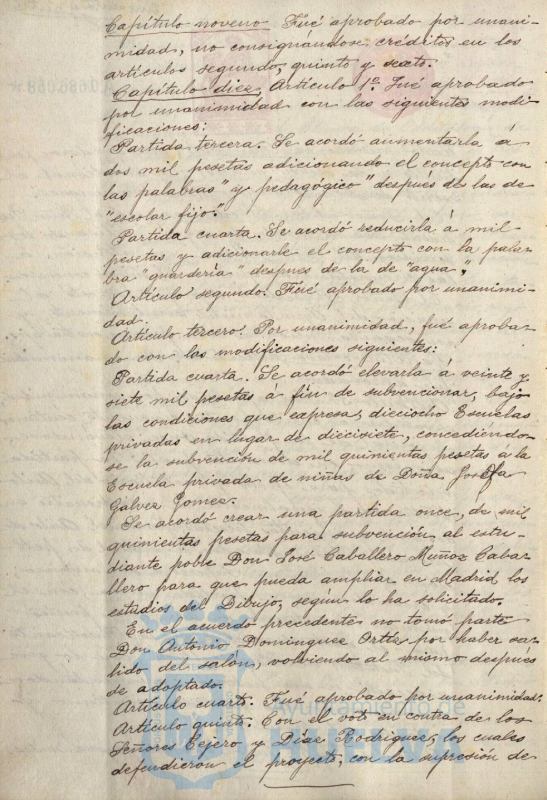 Capítulo noveno. Fué aprobado por unani-
midad, no consignándose créditos en los
artículos segundo, quinto y sexto.
Capítulo diez, Artículo 1º. Fué aprobado
por unanimidad con las siguientes modi-
ficaciones:
Partida tercera. Se acordó aumentarla á
dos mil pesetas adicionando el concepto con
las palabras "y pedagógico" después de las de
"escolar fijo".
Partida cuarta. Se acordó reducirla á mil
pesetas y adicionarle el concepto con la pala-
bra "guardería" despues de la de "agua".
Artículo segundo. Fué aprobado por unanimi-
dad.
Artículo tercero. Por unanimidad, fué aproba-
do con las modificaciones siguientes:
Partida cuarta. Se acordó elevarla á veinte y
siete mil pesetas á fin de subvencionar, bajo
las condiciones que expresa, dieciocho Escuelas
privadas en lugar de diecisiete, concediéndo-
se la subvención de mil quinientas pesetas a la
Escuela privada de niñas de Doña Josefa
Galvez Gomez.
Se acordó crear una partida once, de mil
quinientas pesetas para subvención al estu-
diante poble Don José Caballero Muñoz Cabar
llero para que pueda ampliar en Madrid los
estudios del Dibujo, según lo ha solicitado.
En el acuerdo precedente no tomó parte
Don Antonio Dominguez Ortiz por haber sa-
lido del salón, volviendo al mismo después
de adoptado.
Artículo cuarto. Fué aprobado por unanimidad.
Artículo quinto. Con el voto en contra de los
Señores Tejero y Díaz Rodriguez, los cuales
defendieron el proyecto, con la supresión de
Ayuntamiento de
HUELVA